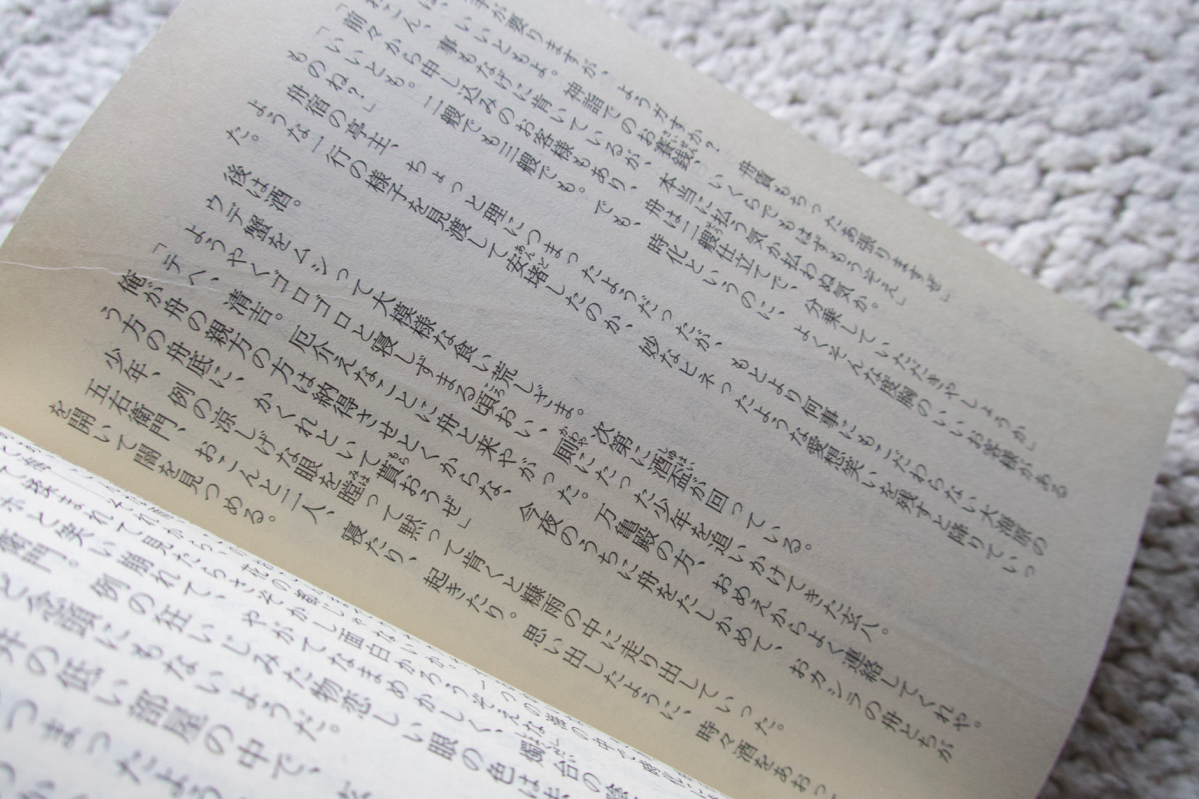 手が要りますが、ようガすか？　舟賃もちったあ張りますぜ」
いいともよ。神詣でのお賽銭、いくらでもはずもうぞえ」
こん、事もなげに肯いているが、本当に払う気か払わぬ気か。
「前々から申し込みのお客様もあり、舟は二艘仕立てで、分乗していただきやしょうか」
「いいとも。二艘でも三艘でも。でも、時化というのに、よくそんな度胸のいいお客様がある
ものね？」
舟宿の亭主、ちょっと理につまったようだったが、もとより何事にもこだわらない大海原の
ような一行の様子を見渡して安堵したのか、妙なヒネったような愛想笑いを残すと降りていっ
た。
後は酒。
ウデ蟹をムシって大模様な食い荒しざま。次第に酒盃が回っている。
ようやくゴロゴロと寝しずまる頃おい、厠にたった少年を追いかけてきた玄八。
「テヘ、清吉。厄介えなことに舟と来やがった。万亀殿の方、おめえからよく連絡してくれや。
俺が舟の親方の方は納得させとくからな、今夜のうちに舟をたしかめて、おカシラの舟とちが
う方の舟底に、かくれといて貰おうぜ」
少年、例の涼しげな眼を瞠って黙って肯くと糠雨の中に走り出していった。
五右衛門、おこんと二人、寝たり、起きたり。思い出したように、時々酒をあおっ
を開いて闇を見つめる。
と笑い崩れて、やがてなまめかしく、燭台の
衛門。例の狂いじみた物恋しい眼の色は
念頭にもないようだ。
井の低い部屋の中で、
つまったよう